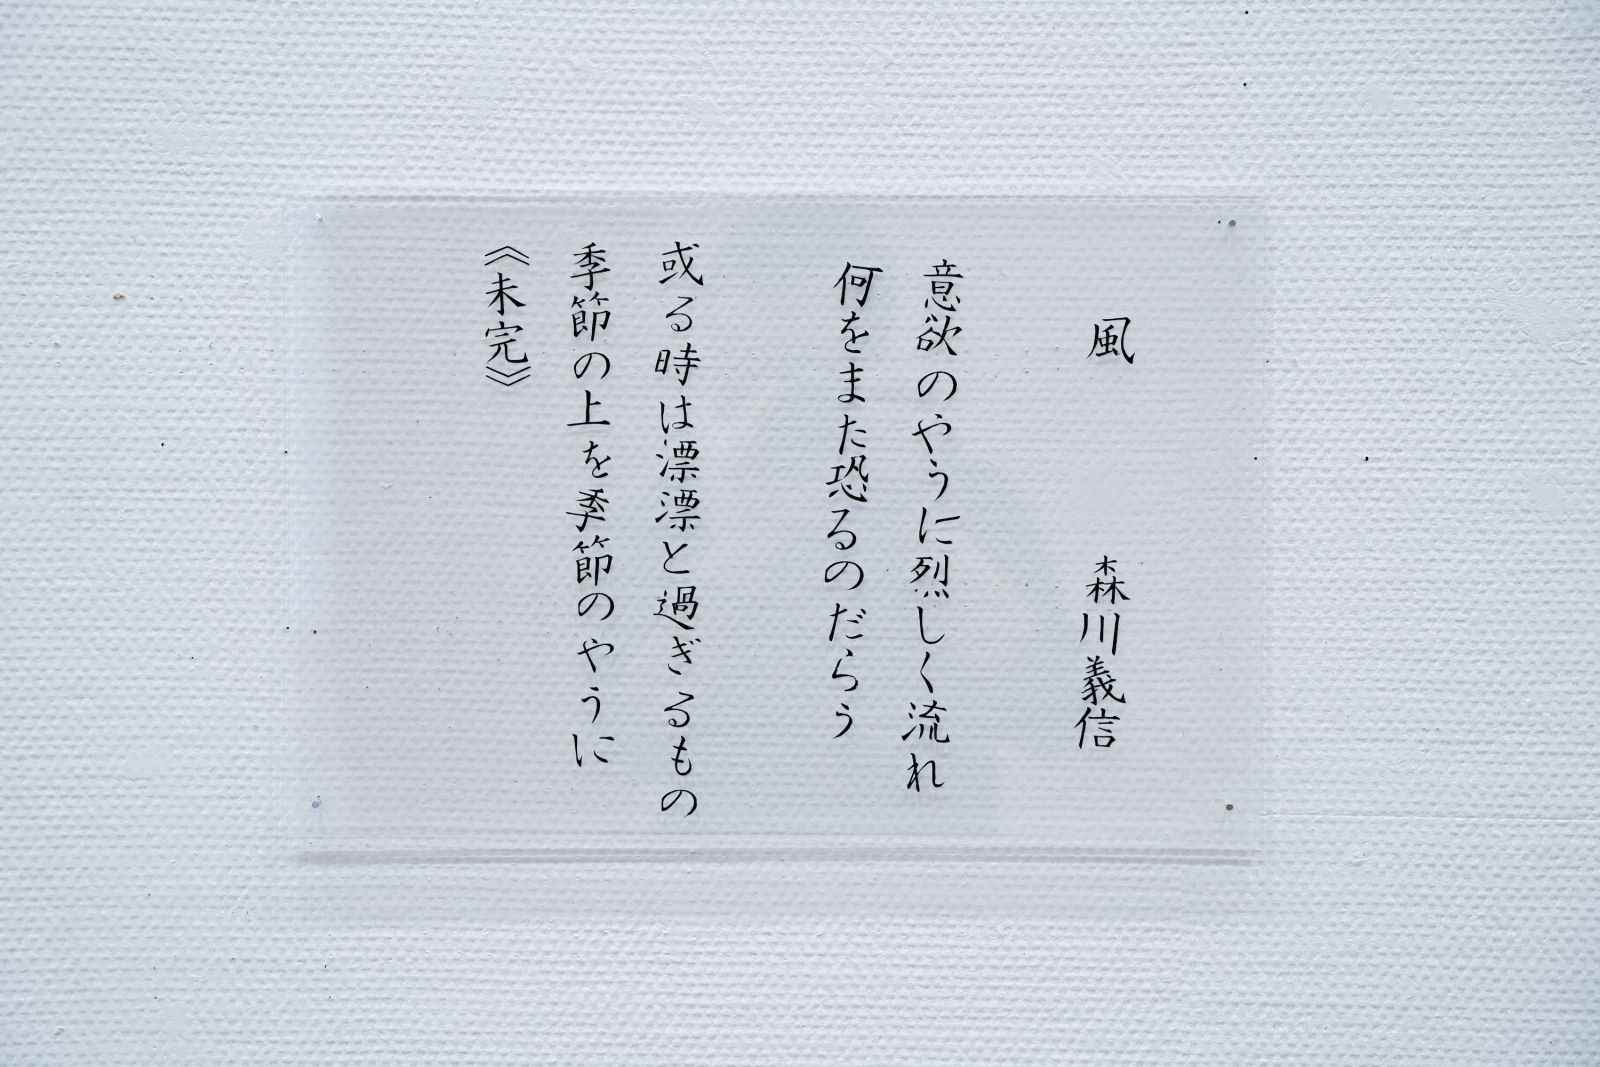 風　森川義信
意欲のやうに烈しく流れ
何をまた恐るのだらう
或る時は漂漂と過ぎるもの
季節の上を季節のやうに
《未完》